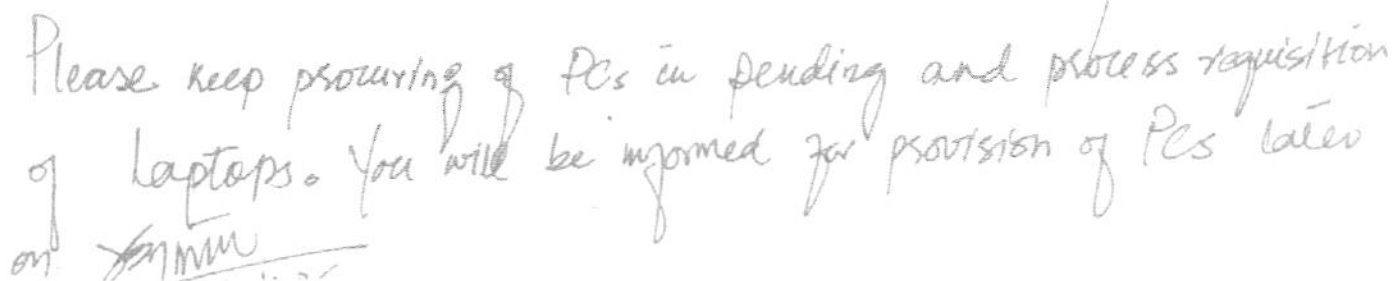 Please keep procuring of PCs in pending and process requisition
of Laptops. You will be informed for provision of PCs later
on